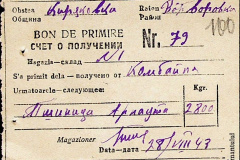 Obstea Кирковца Raion Вор Боровка
Община Район
BON DE PRIMIRE 100
СЧЕТ О ПОЛУЧЕНИИ Nr. 79
Magazia—склад №1
S'a primit dela—получено от Комбайна
Urmatoarele—следующее: Kgr.
Пшиница Арнаутка 2800
Magazioner
Data—дата 28/VIII 43